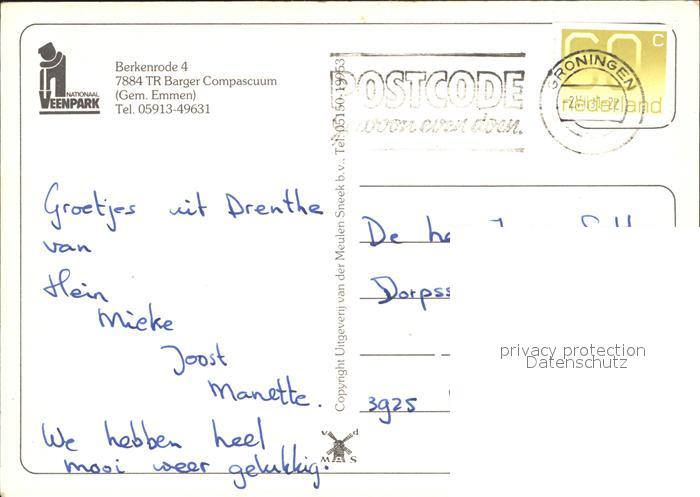 NATIONAAL
VEENPARK
Berkenrode 4
7884 TR Barger Compascuum
(Gem. Emmen)
Tel. 05913-49631
POSTCODE
woon even doen.
GRONINGEN
60 c
nederland
Groetjes uit Drenthe
van
Hein
Mieke
Joost
Manette.
We hebben heel
mooi weer gelukkig.
Copyright Uitgeverij van der Meulen Sneek b.v., Tel. 05150-19953
v d
M S
De
Dorpss
3925
privacy protection
Datenschutz